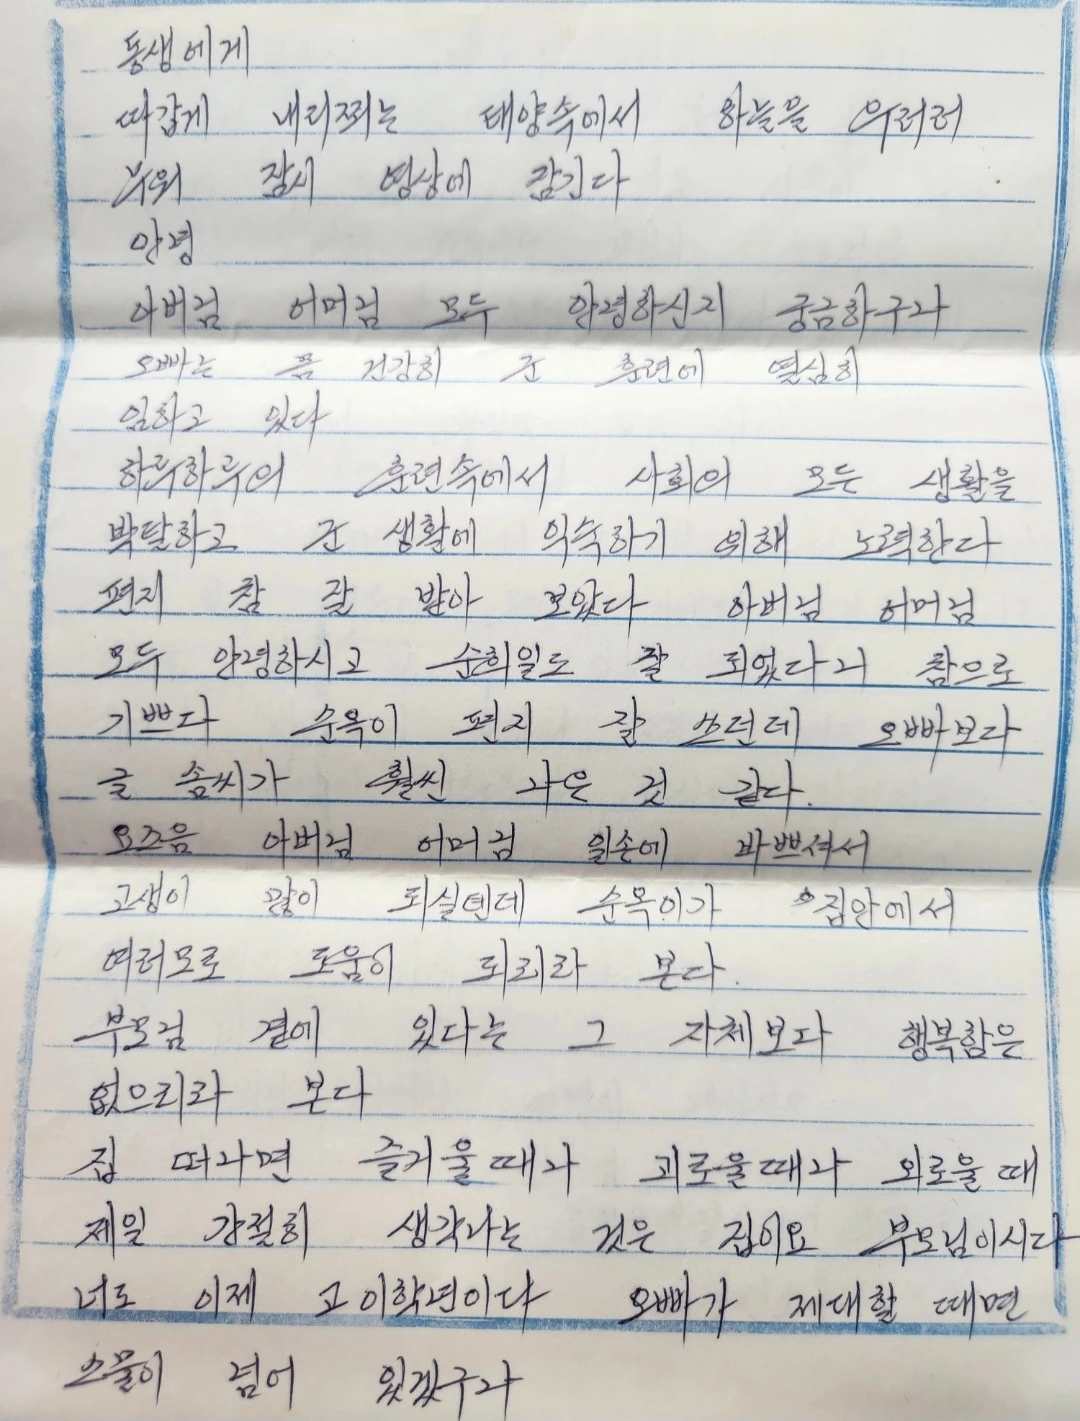 동생에게
따갑게 내리쬐는 태양속에서 하늘을 우러러
누워 잠시 명상에 잠긴다
안녕
아버님 어머님 모두 안녕하신지 궁금하구나
오빠는 몸 건강히 군 훈련에 열심히
임하고 있다
하루하루의 훈련속에서 사회의 모든 생활을
박탈하고 군 생활에 익숙하기 위해 노력한다
편지 참 잘 받아 보았다 아버님 어머님
모두 안녕하시고 순희일도 잘 되었다니 참으로
기쁘다 순옥이 편지 잘 쓰던데 오빠보다
글 솜씨가 훨씬 나은 것 같다.
요즈음 아버님 어머님 일손에 바쁘셔서
고생이 많이 되실텐데 순옥이가 집안에서
여러모로 도움이 되리라 본다.
부모님 곁에 있다는 그 자체보다 행복함은
없으리라 본다
집 떠나면 즐거울때나 괴로울때나 외로울때
제일 간절히 생각나는 것은 집이요 부모님이시다
너도 이제 고 이학년이다 오빠가 제대할 때면
스물이 넘어 있겠구나